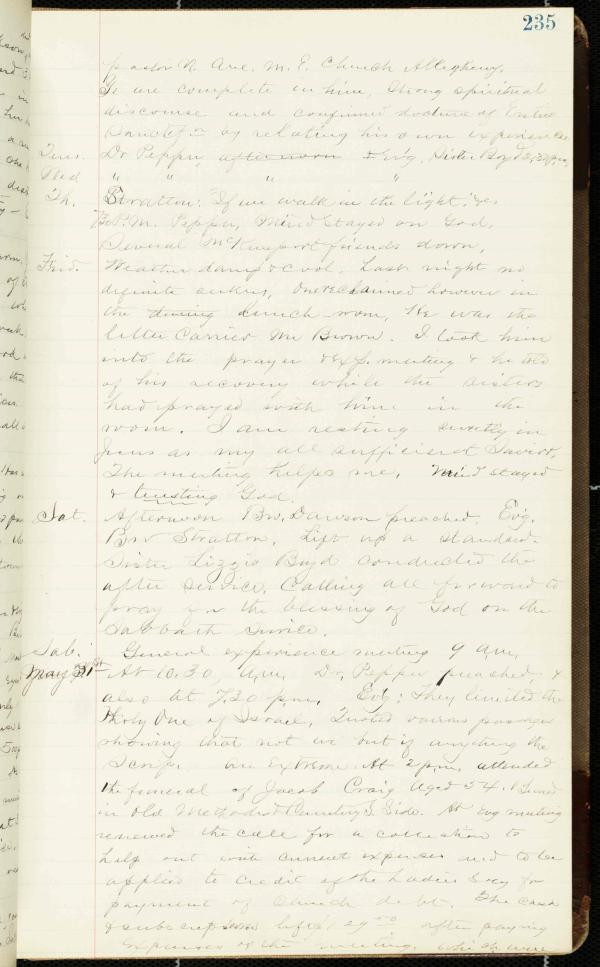 235
pastor N. Ave. M. E. Church Allegheny.
Ye are complete in him, Strong spiritual
discourse and confirmed doctrine of Entire
by relating his own experience
Tues. Dr Pepper, afternoon & Evg, Sister Boyd
Wed " " " "
Th. Stratton: "If we walk in the light." &c.
P. M. Pepper, Mind Stayed on God.
Several McKeesport friends down,
Frid. Weather damp & cool. Last night no
definite seekers, One reclaimed however in
the dining lunch room, He was the
letter carrier Mr Brown. I took him
into the prayer & Ex. meeting & he told
of his recovery while the sisters
had prayed with him in the
room. I am resting sweetly in
Jesus as my all sufficient Savior,
The meeting helps me. Mind stayed
& trusting God.
Sat. Afternoon Bro. Dawson preached. Evg.
Bro Stratton. Lift up a standard.
Sister Lizzie Boyd conducted the
after service. Calling all forward to
pray for the blessing of God on the
Sabbath service.
Sab. General experience meeting 9 a.m.
May 31st At 10.30, a.m. Dr. Pepper preached, &
also at 7.30 p.m. Evg: They limited the
Holy One of Israel, Quoted various passages
showing that not we but if anything the
Scrip. are Extreme. At 2 p.m. attended
the funeral of Jacob Craig aged 54. Buried
in Old Methodist Cemetery S. Side. At Evg meeting
renewed the call for a collection to
help out with current expenses and to be
applied to credit of the Ladies Socy for
payment of Church debt. The cash
& subscriptions lifted after paying
expenses of the meeting, which were